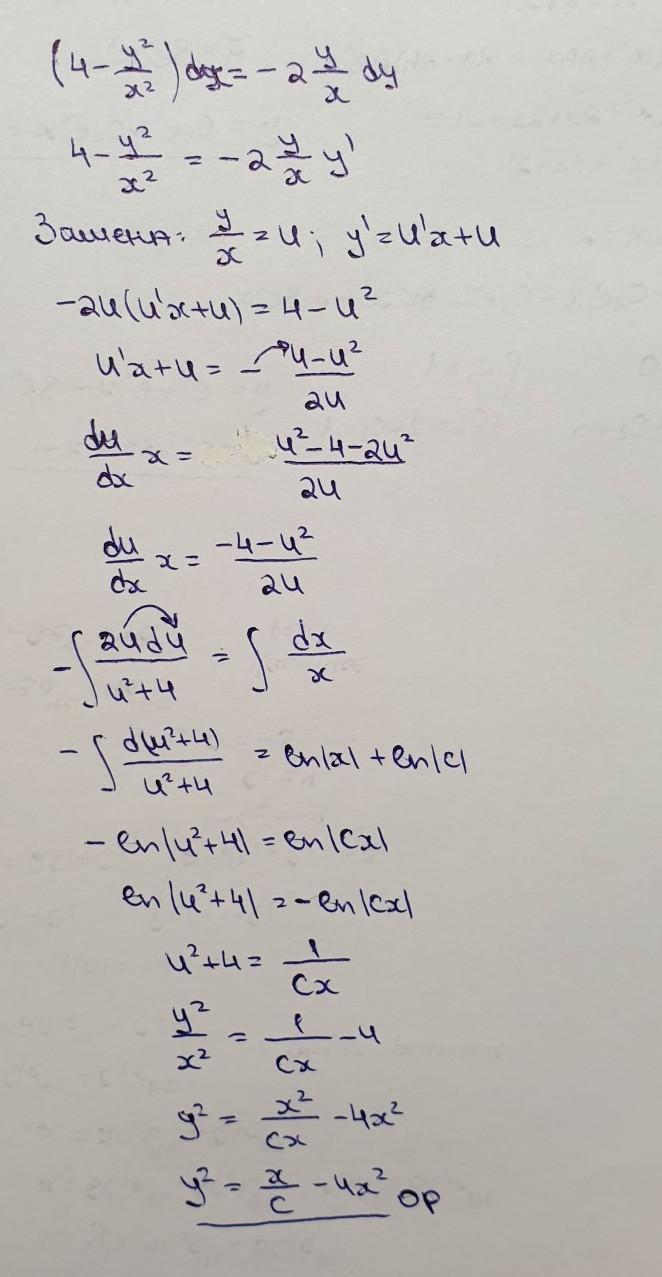 (4 - y²/x²) dx = -2 y/x dy
4 - y²/x² = -2 y/x y'
Замена: y/x = u; y' = u'x + u
-2u(u'x + u) = 4 - u²
u'x + u = - (4 - u²)/2u
du/dx x = (u² - 4 - 2u²)/2u
du/dx x = (-4 - u²)/2u
-∫ 2u du/(u² + 4) = ∫ dx/x
-∫ d(u² + 4)/(u² + 4) = ln|x| + ln|c|
-ln|u² + 4| = ln|cx|
ln|u² + 4| = -ln|cx|
u² + 4 = 1/cx
y²/x² = 1/cx - 4
y² = x²/cx - 4x²
y² = x/c - 4x² ОР